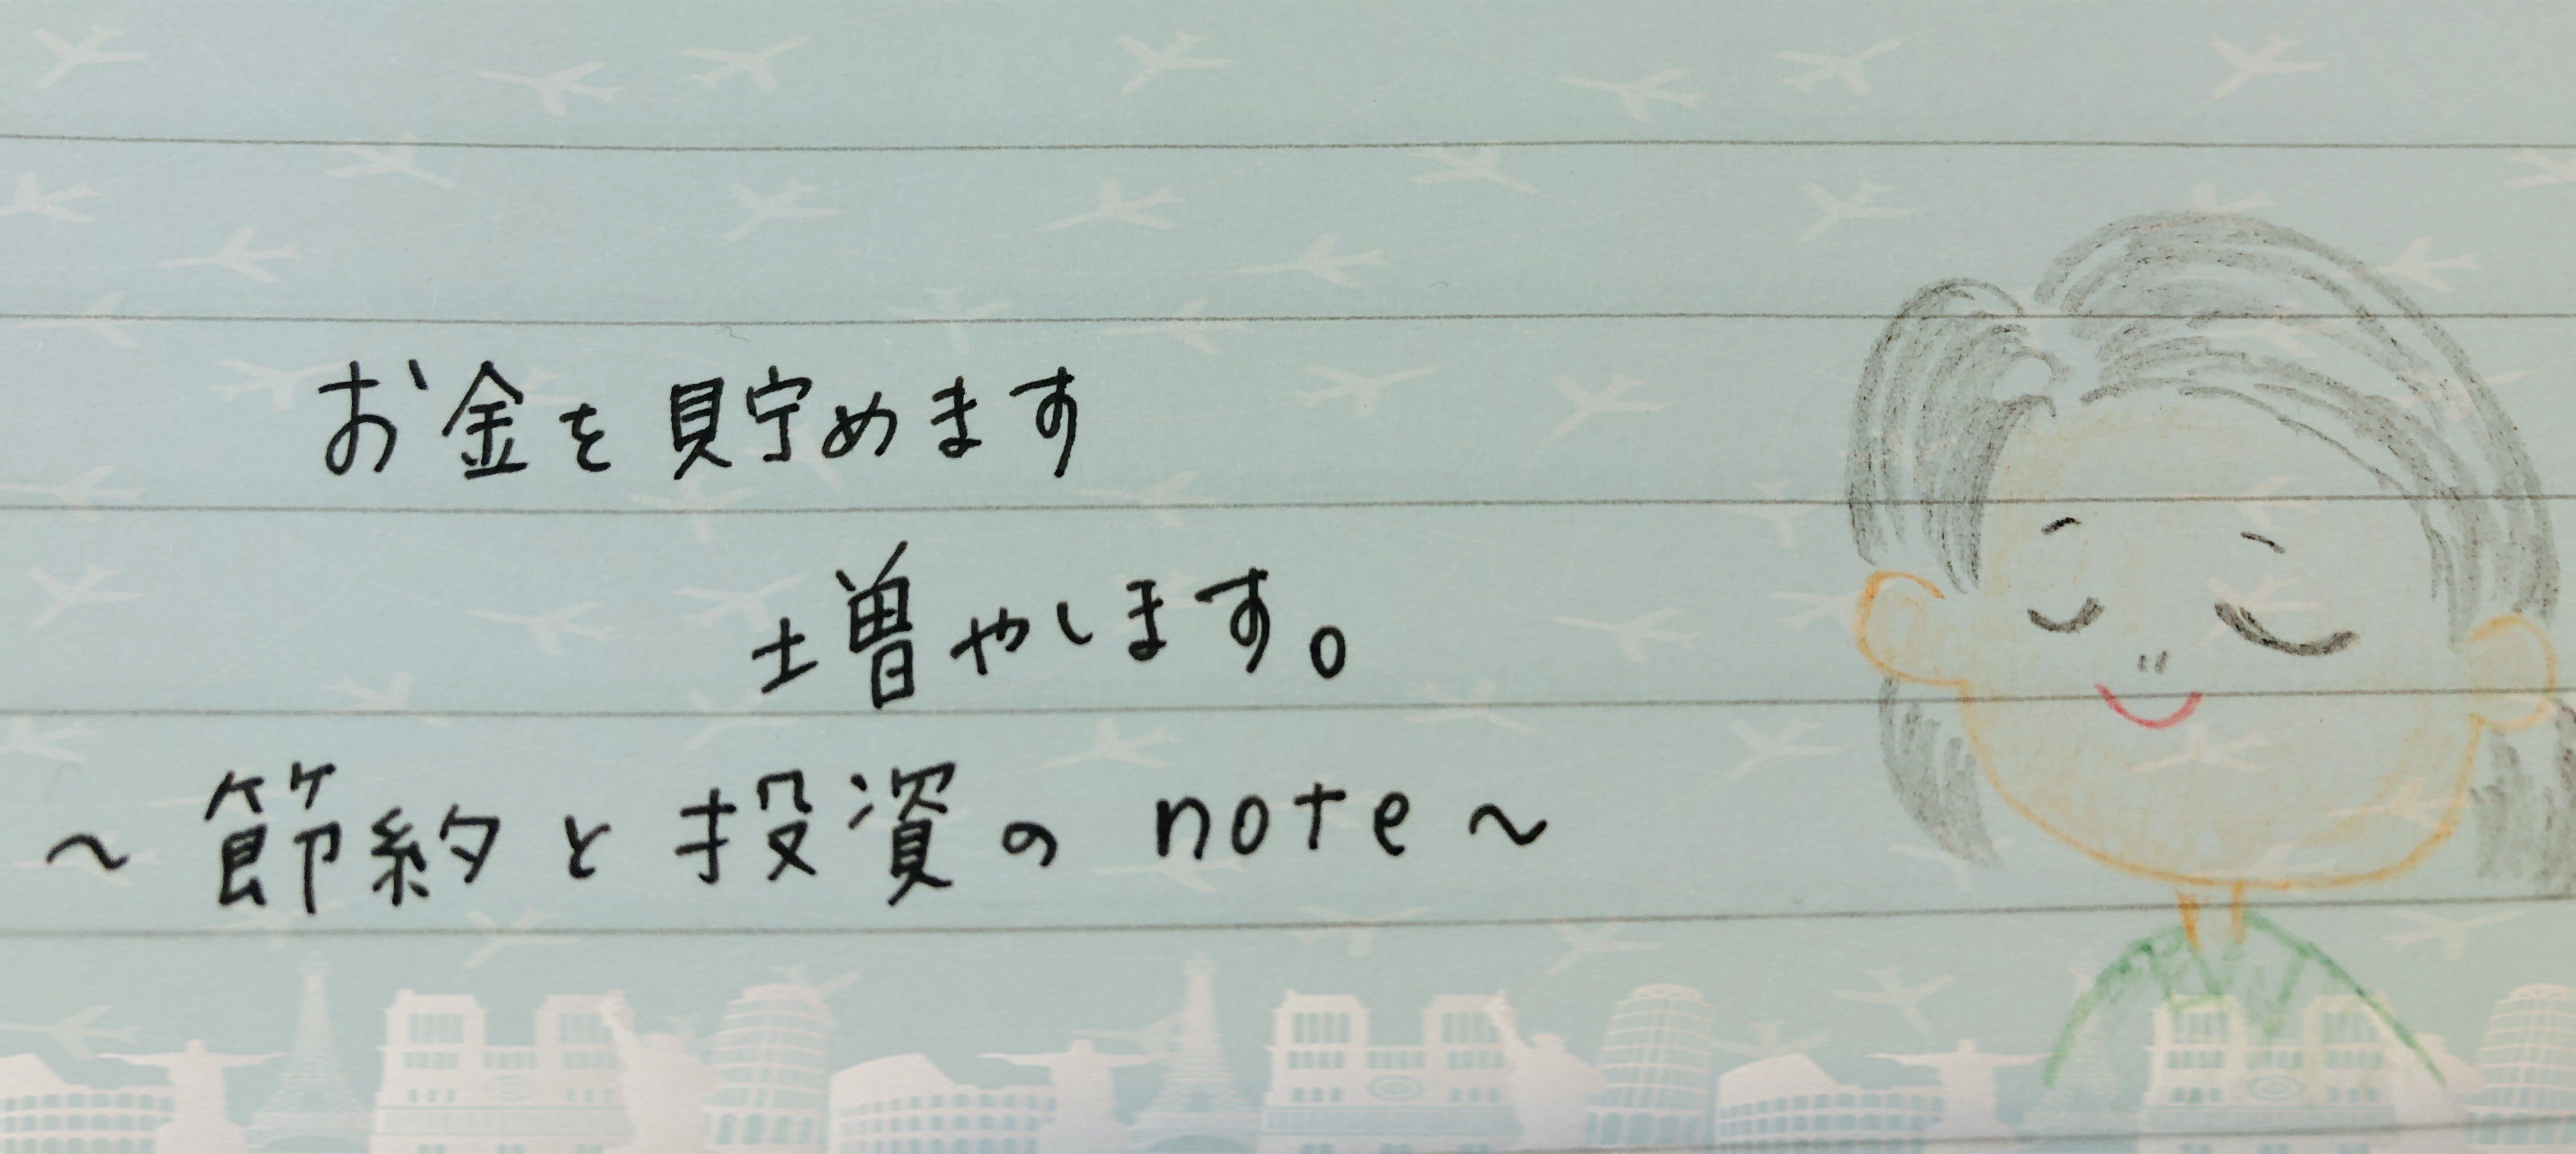 お金を貯めます
増やします。
～節約と投資の note～